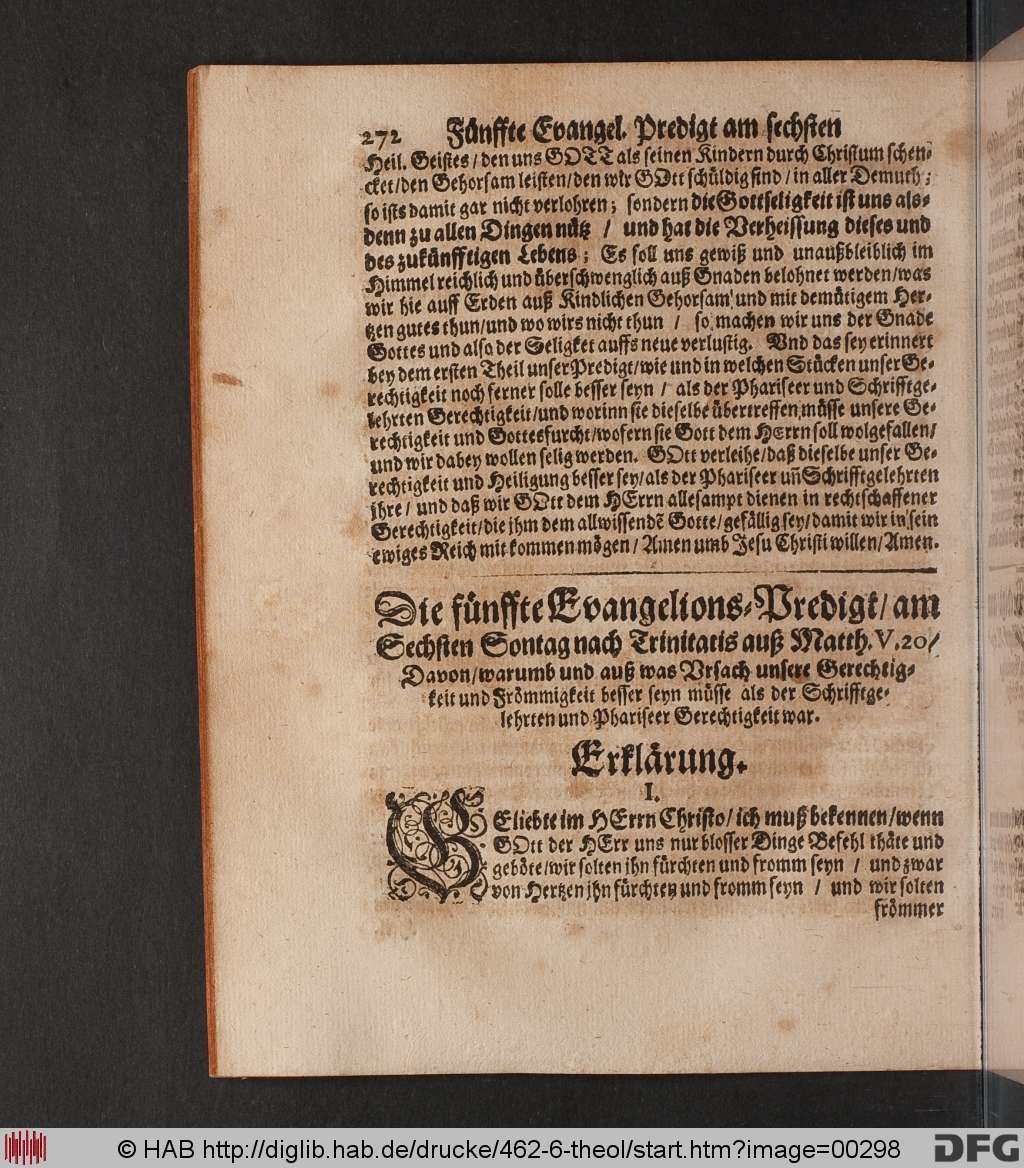 272 Fünffte Evangel. Predigt am sechsten
Heil. Geistes / den uns GOTT als seinen Kindern durch Christum schen-
cket / den Gehorsam leisten / den wir GOtt schüldig sind / in aller Demuth;
so ists damit gar nicht verlohren; sondern die Gottseligkeit ist uns als-
denn zu allen Dingen nütz / und hat die Verheissung dieses und
des zukünfftigen Lebens; Es soll uns gewiß und unaußbleiblich im
Himmel reichlich und überschwenglich auß Gnaden belohnet werden / was
wir hie auff Erden auß Kindlichen Gehorsam und mit demütigem Her-
tzen gutes thun / und wo wirs nicht thun / so machen wir uns der Gnade
Gottes und also der Seligket auffs neue verlustig. Vnd das sey erinnert
bey dem ersten Theil unser Predigt / wie und in welchen Stücken unser Ge-
rechtigkeit noch ferner solle besser seyn / als der Phariseer und Schrifftge-
lehrten Gerechtigkeit / und worinn sie dieselbe übertreffen müsse unsere Ge-
rechtigkeit und Gottesfurcht / wofern sie Gott dem HErrn soll wolgefallen /
und wir dabey wollen selig werden. GOtt verleihe / daß dieselbe unser Ge-
rechtigkeit und Heiligung besser sey / als der Phariseer uñ Schrifftgelehrten
jhre / und daß wir GOtt dem HErrn allesampt dienen in rechtschaffener
Gerechtigkeit / die ihm dem allwissendẽ Gotte / gefällig sey / damit wir in sein
ewiges Reich mit kommen mögen / Amen umb Jesu Christi willen / Amen.
Die fünffte Evangelions-Predigt / am
Sechsten Sontag nach Trinitatis auß Matth. V. 20 /
Davon / warumb und auß was Vrsach unsere Gerechtig-
keit und Frömmigkeit besser seyn müsse als der Schrifftge-
lehrten und Phariseer Gerechtigkeit war.
Erklärung.
I.
GEliebte im HErrn Christo / ich muß bekennen / wenn
GOtt der HErr uns nur blosser Dinge Befehl thäte und
geböte / wir solten jhn fürchten und fromm seyn / und zwar
von Hertzen jhn fürchten und fromm seyn / und wir solten
frömmer
© HAB http://diglib.hab.de/drucke/462-6-theol/start.htm?image=00298
DFG